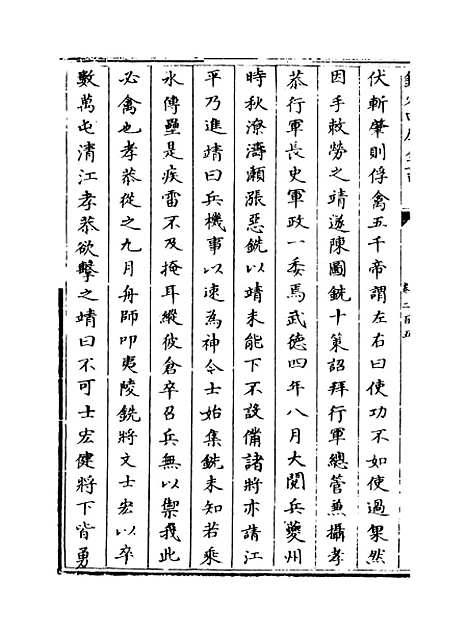 伏斬肇則俘禽五千帝謂左右曰使功不如使過果然
因手敕勞之靖遂陳圖銑十策詔拜行軍總管兼攝孝
恭行軍長史軍政一委焉武德四年八月大閱兵夔州
時秋潦濤瀨漲惡銑以靖未能下不設備諸將亦請江
平乃進靖曰兵機事以速為神今士始集銑未知若乘
水傅壘是疾雷不及掩耳縱彼倉卒召兵無以禦我此
必禽也孝恭從之九月舟師叩夷陵銑將文士宏以卒
數萬屯清江孝恭欲擊之靖曰不可士宏健將下皆勇